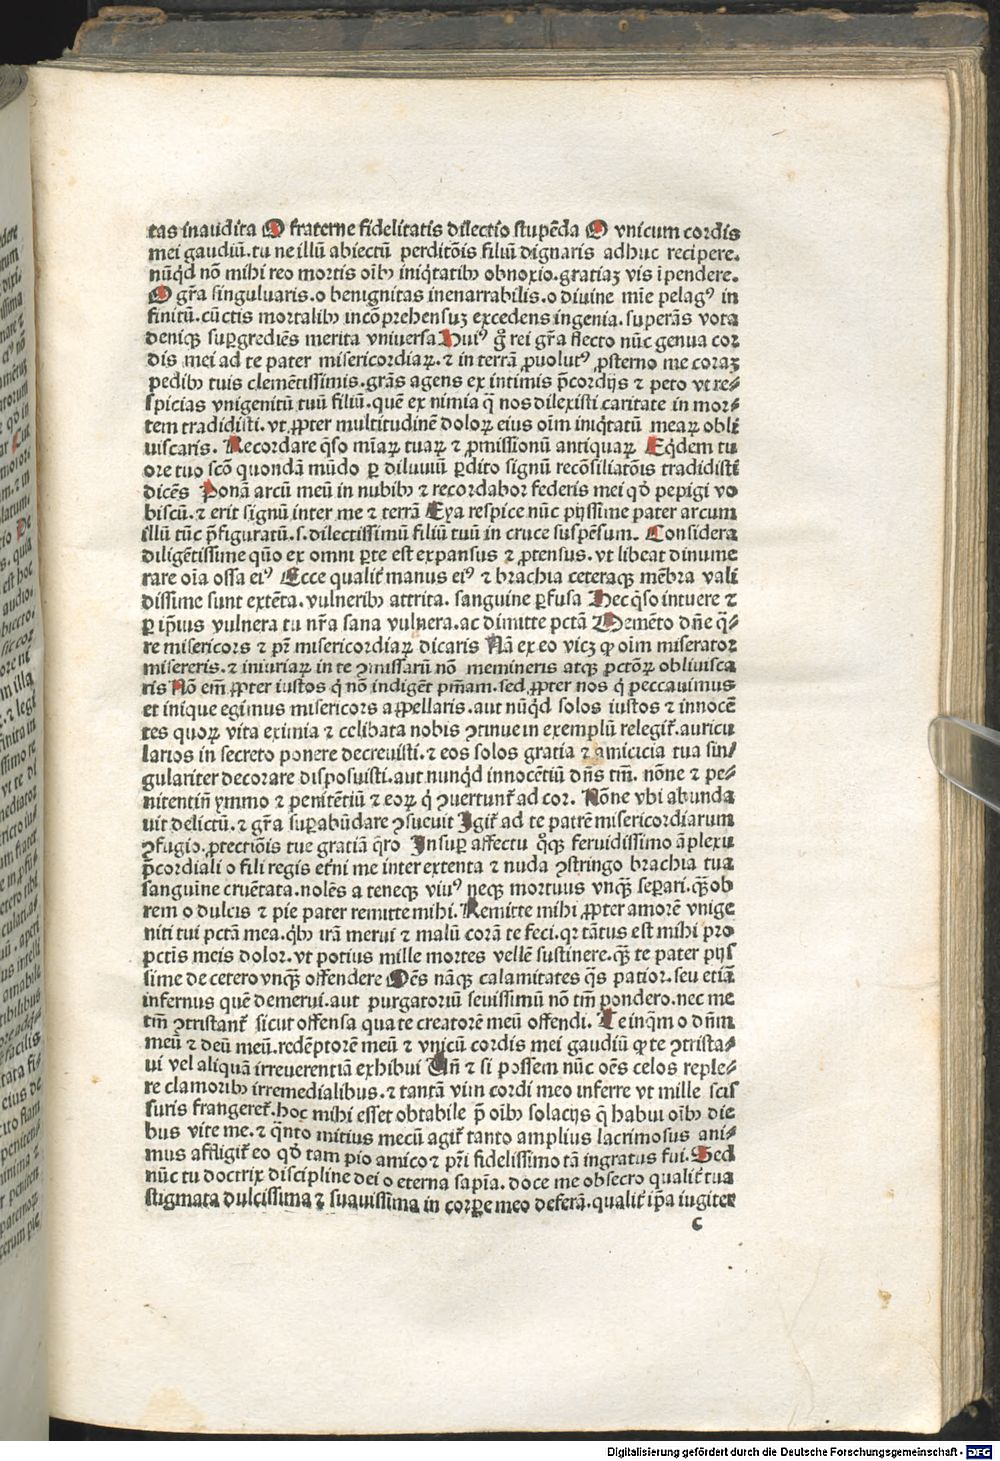 tas inaudita O fraterne fidelitatis dilectio stupēda O vnicum cordis
mei gaudiū.tu ne illū abiectū perditōis filiū dignaris adhuc recipere.
nūqd nō mihi reo mortis oībꝫ iniqtatibꝫ obnoxio.gratiaꝫ vis īpendere.
O gr̄a singuluaris.o benignitas inenarrabilis.o diuine mīe pelagꝰ in
finitū.cūctis mortalibꝫ incōprehensuꝫ excedens ingenia.superās vota
deniqꝫ suꝑgrediēs merita vniuersa Huiꝰ gͦ rei gr̄a flecto nūc genua cor
dis mei ad te pater misericordiaꝝ.⁊ in terrā ꝓuolutꝰ ꝓsterno me coraꝫ
pedibꝫ tuis clemētissimis.grās agens ex intimis p̄cordijs ⁊ peto vt re⸗
spicias vnigenitū tuū filiū.quē ex nimia q̄ nos dilexisti caritate in mor⸗
tem tradidisti.vt ꝓpter multitudinē doloꝝ eius oīm iniqtatū meaꝝ obli
uiscaris. Recordare qͥso mīaꝝ tuaꝝ ⁊ ꝓmissionū antiquaꝝ Eqͥdem tu
ore tuo scō quondā mūdo ꝑ diluuiū ꝑdito signū recōsiliatōis tradidisti
dicēs Ponā arcū meū in nubibꝫ ⁊ recordabor federis mei qđ pepigi vo
biscū.⁊ erit signū inter me ⁊ terrā Eya respice nūc pijssime pater arcum
illū tūc p̄figuratū.s.dilectissimū filiū tuū in cruce suspēsum. Considera
diligētissime quō ex omni ꝑte est expansus ⁊ ꝓtensus.vt libeat dinume
rare oīa ossa eiꝰ Ecce qualit̄ manus eiꝰ ⁊ brachia ceteraqꝫ mēbra vali
dissime sunt extēta.vulneribꝫ attrita. sanguine ꝑfusa Hec qͥso intuere ⁊
ꝑ ip̄ius vulnera tu nr̄a sana vulnera.ac dimitte pctā Memēto dn̄e q̄⸗
re misericors ⁊ pr̄ misericordiaꝝ dicaris Nā ex eo vicꝫ ꝙ oīm miserator
misereris.⁊ iniuriaꝝ in te ꝯmissarū nō memineris atqꝫ pctōꝝ obliuisca
ris Nō em̄ ꝓpter iustos qͥ nō indigēt pn̄iam.sed ꝓpter nos qͥ peccauimus
et inique egimus misericors appellaris.aut nūqͥd solos iustos ⁊ innocē
tes quoꝝ vita eximia ⁊ celibata nobis ꝯtinue in exemplū relegit̄.auricu
larios in secreto ponere decreuisti.⁊ eos solos gratia ⁊ amicicia tua sin⸗
gulariter decorare disposuisti.aut nunqͥd innocētiū dn̄s tm̄. nōne ⁊ pe⸗
nitentiū ymmo ⁊ penitētiū ⁊ eoꝝ qͥ ꝯuertunt̄ ad cor. Nōne vbi abunda
uit delictū.⁊ gr̄a suꝑabūdare ꝯsueuit Igit̄ ad te patrē misericordiarum
ꝯfugio.ꝓtectiōis tue gratiā qͥro Insuꝑ affectu qͦqꝫ feruidissimo āplexu
p̄cordiali o fili regis et̄ni me inter extenta ⁊ nuda ꝯstringo brachia tua
sanguine cruētata.nolēs a te neqꝫ viuꝰ neqꝫ mortuus vnqꝫ seꝑari.qꝫ ob
rem o dulcis ⁊ pie pater remitte mihi.Remitte mihi ꝓpter amorē vnige
niti tui pctā mea.qͥbꝫ irā merui ⁊ malū corā te feci.qꝛ tātus est mihi pro
pctīs meis dolor.vt potius mille mortes vellē sustinere.qꝫ te pater pijs
sime de cetero vnqꝫ offendere Oēs nāqꝫ calamitates qͣs patior.seu etiā
infernus quē demerui.aut purgatoriū seuissimū nō tm̄ pondero.nec me
tm̄ ꝯtristant̄ sicut offensa qua te creatorē meū offendi. Te inqͣm o dn̄m
meū ⁊ deū meū.redēptorē meū ⁊ vnicū cordis mei gaudiū ꝙ te ꝯtrista⸗
ui vel aliquā irreuerentiā exhibui Vn̄ ⁊ si possem nūc oēs celos reple⸗
re clamoribꝫ irremedialibus.⁊ tantā vim cordi meo inferre vt mille scis
suris frangeret̄.hoc mihi esset obtabile p̄ oībꝫ solacijs q̄ habui oībꝫ die
bus vite me.⁊ qͣnto mitius mecū agit̄ tanto amplius lacrimosus ani⸗
mus affligit̄ eo qđ tam pio amico ⁊ pr̄i fidelissimo tā ingratus fui.Sed
nūc tu doctrix discipline dei o eterna sapīa.doce me obsecro qualit̄ tua
stigmata dulcissima ⁊ suauissima in corꝑe meo deferā.qualit̄ ip̄a iugiter
c
Digitalisierung gefördert durch die Deutsche Forschungsgemeinschaft - DFG